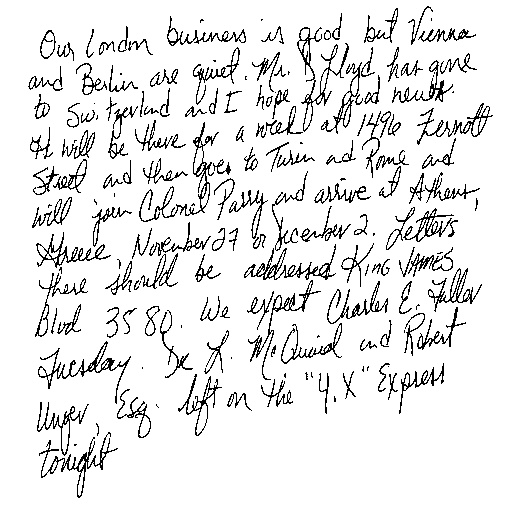 Our London business is good but Vienna
and Berlin are quiet. Mr. D Lloyd has gone
to Switzerland and I hope for good news.
He will be there for a week at 1496 Zermott
Street and then goes to Turin and Rome and
will join Colonel Parry and arrive at Athens,
Greece, November 27 or December 2. Letters
there should be addressed King JAMES
Blvd 3580. We expect Charles E. Fuller
Tuesday. Dr L. McQuaid and Robert
Unger, Esq. left on the "Y.X" Express
tonight